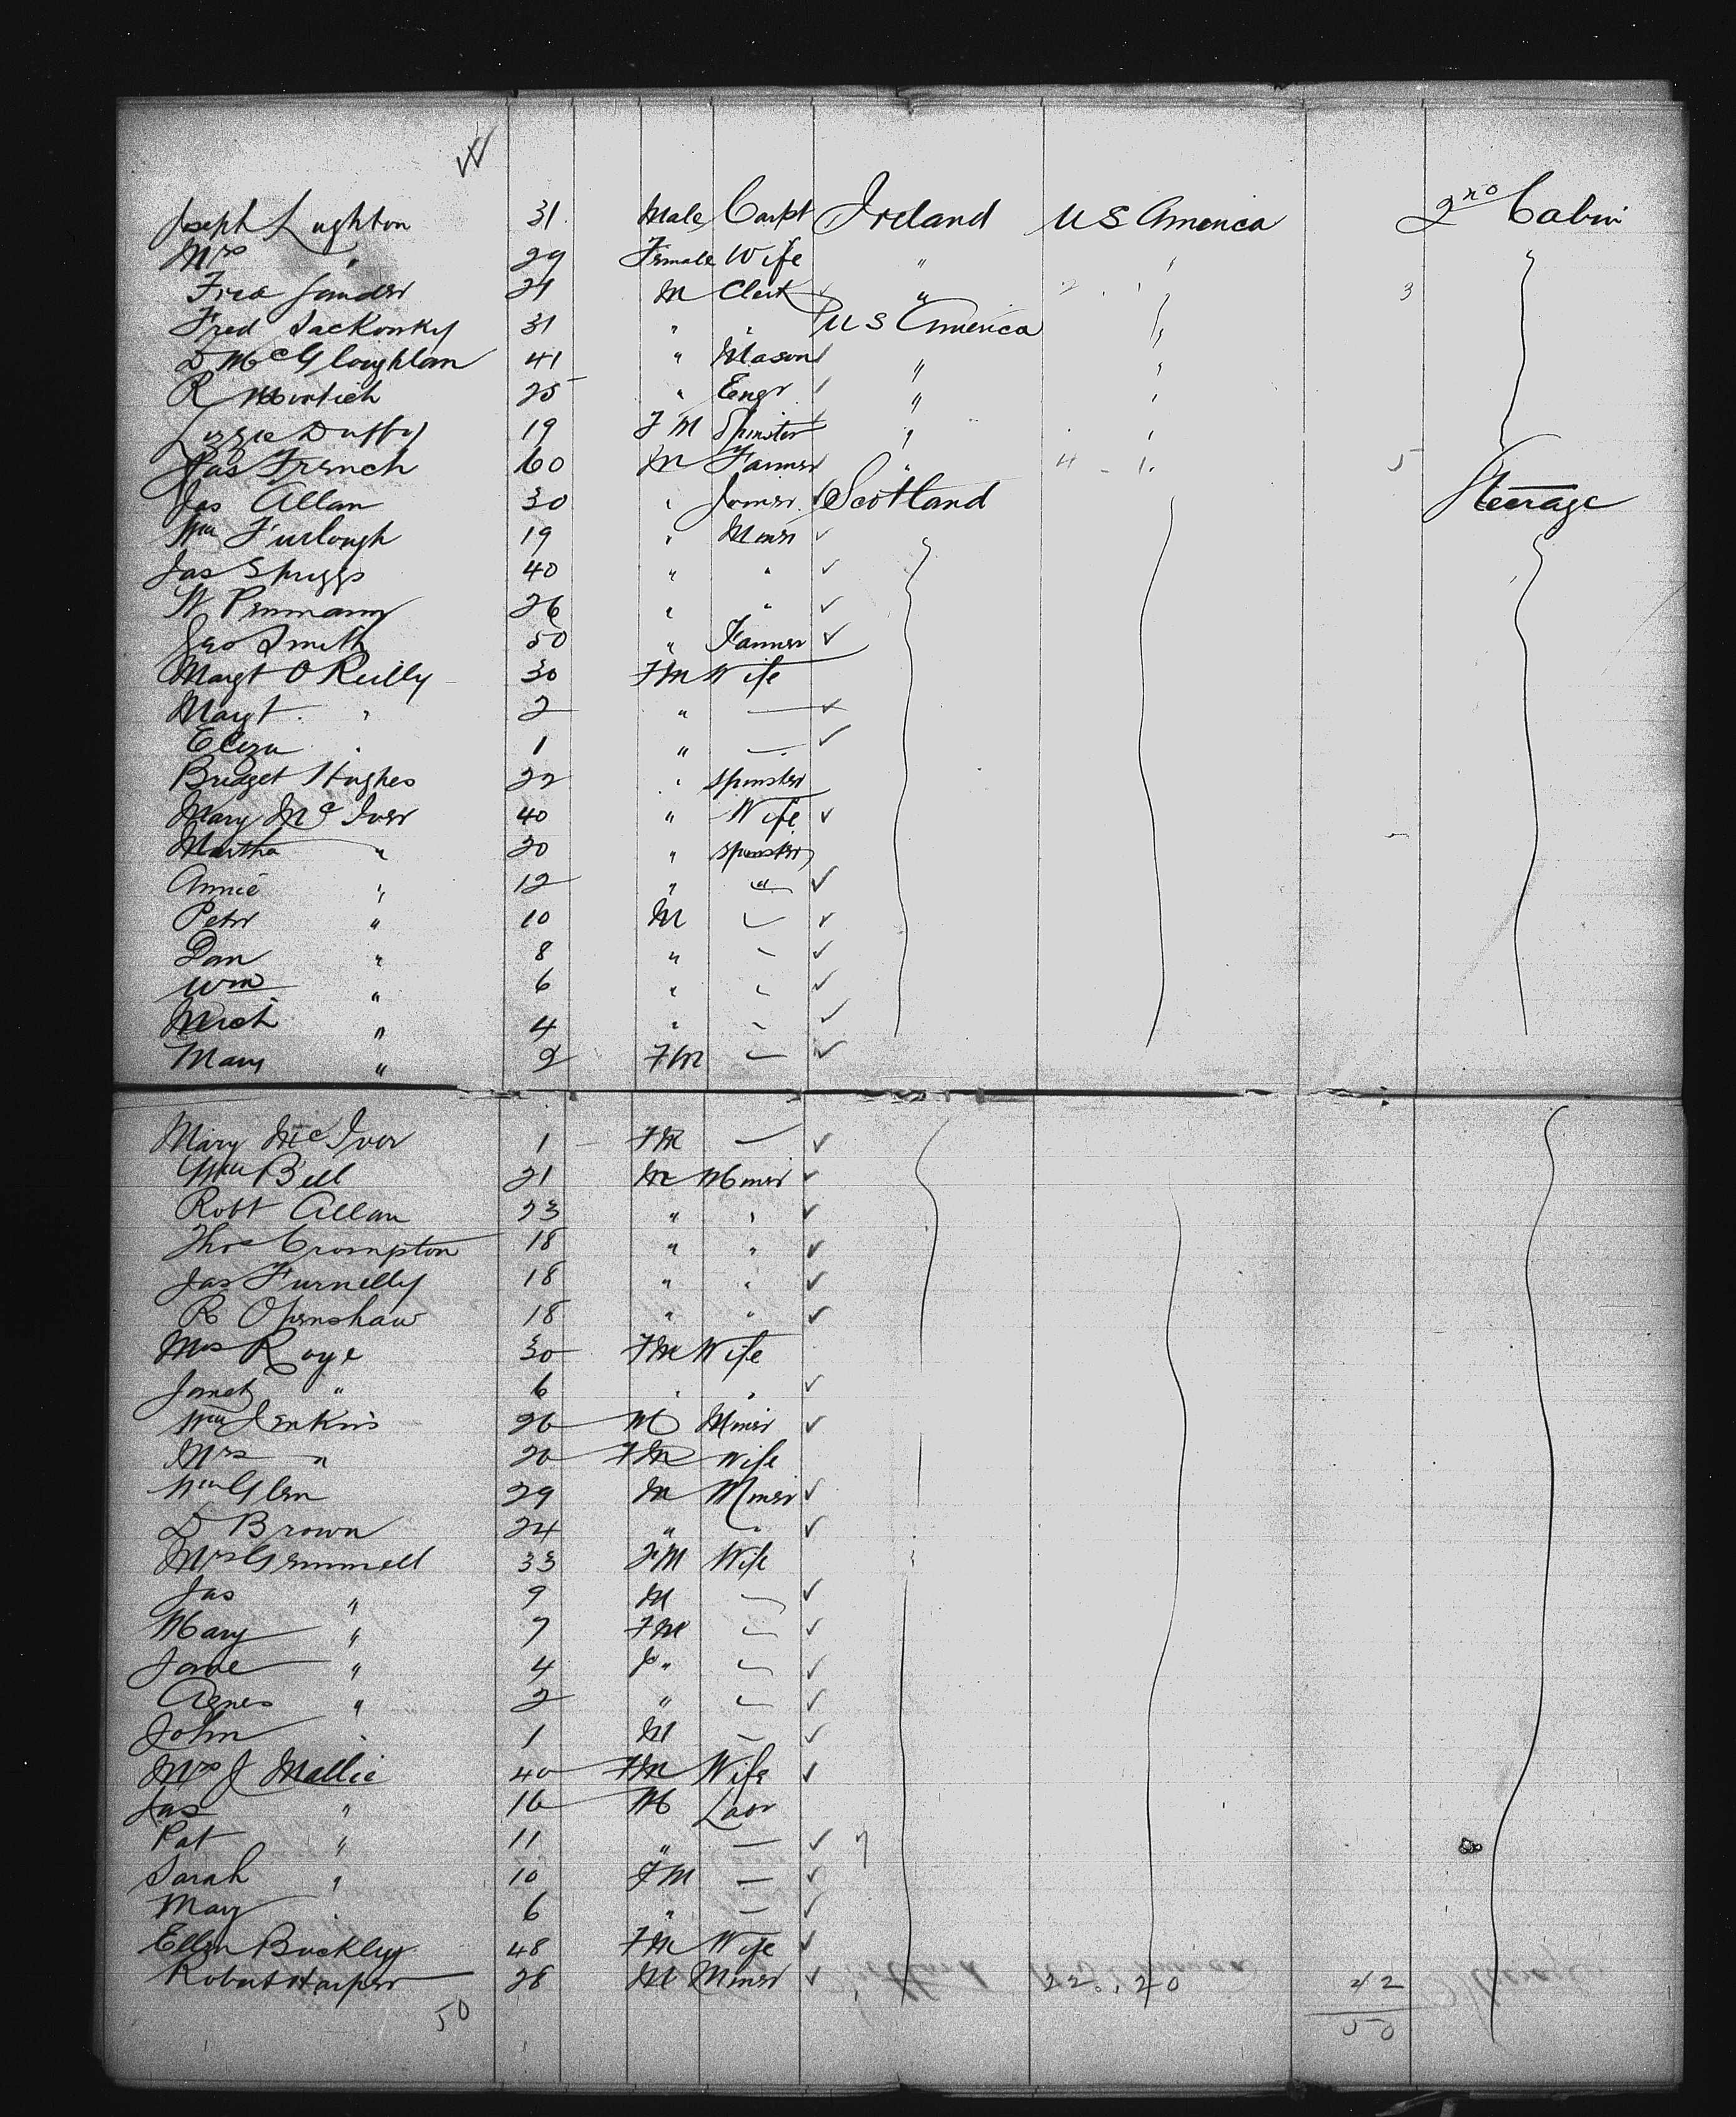 Joseph Lughton 31 Male Carpt Ireland U S America 2nd Cabin
Mrs " 29 Female Wife " "
Fred Sander 21 M Clerk " 2 . 1 3
Fred Sackonsky 31 " " U S America "
D McGloughlan 41 " Mason " "
R 25 " Engr " "
Lizzie Duffy 19 FM Spinster " "
Jas French 60 M Farmer " 4 - 1. 5
Jas Allan 30 " Joiner Scotland Steerage
Wm Furlough 19 " Miner
Jas Spriggs 40 " "
W Penmann 26 " "
Geo Smith 50 " Farmer
Margt O Reilly 30 FM Wife
Margt " 2 " —
Eliza " 1 " —
Bridget Hughes 22 " Spinster
Mary McIver 40 " Wife
Martha " 20 " Spinster
Annie " 12 " "
Peter " 10 M —
Dan " 8 " —
Wm " 6 " —
Mich " 4 " —
Mary " 2 FM —
Mary McIver 1 FM —
Wm Bell 21 M Miner
Robt Allan 23 " "
Thos Crompton 18 " "
Jas Furnelly 18 " "
R Openshaw 18 " "
Mrs Roye 30 FM Wife
Janet " 6 " "
Wm Jenkins 26 M Miner
Mrs " 20 FM Wife
Wm Glen 29 M Miner
D Brown 24 " "
Mrs Gemmell 33 FM Wife
Jas " 9 M —
Mary " 7 FM —
Jane " 4 " —
Agnes " 2 " —
John " 1 M —
Mrs J Mallie 40 FM Wife
Jas " 16 M Labr
Pat " 11 " —
Sarah " 10 FM —
Mary " 6 " —
Ellen Buckley 48 FM Wife
Robert Harper 28 M Miner 22 . 20 42
50 50